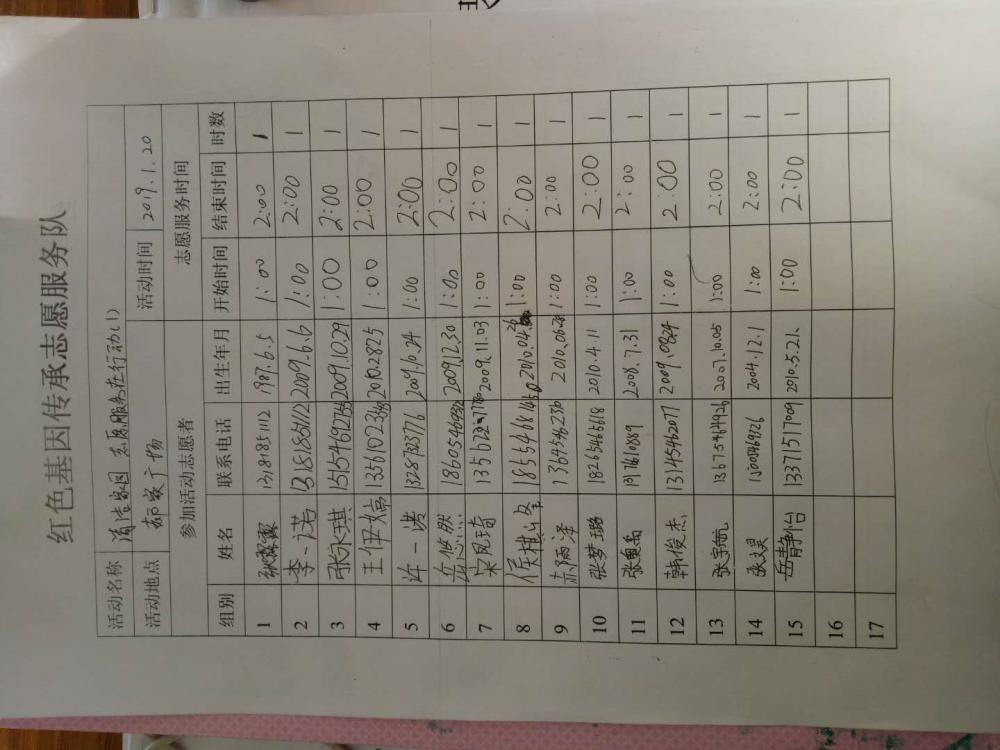 红色基因传承志愿服务队
活动名称 清洁家园 志愿服务在行动(1)
活动地点 广场 活动时间 2019.1.20
参加活动志愿者 志愿服务时间
组别 姓名 联系电话 出生年月 开始时间 结束时间 时数
1 13181851112 1987.6.5 1:00 2:00 1
2 李一诺 13181851112 2009.6.6 1:00 2:00 1
3 张永琪 2009.10.29 1:00 2:00 1
4 王伊婷 20102825 1:00 2:00 1
5 许一诺 13287323776 2009.10.24 1:00 2:00 1
6 2009.12.30 1:00 2:00 1
7 宋凤琦 2009.11.03 1:00 2:00 1
8 侯棋 1:00 2:00 1
9 13645462330 2010.06.28 1:00 2:00 1
10 张梦璐 18265465618 2010.4.11 1:00 2:00 1
11 2008.7.31 1:00 2:00 1
12 韩俊杰 13145462077 2009.0824 1:00 2:00 1
13 张宇航 13675464926 2007.10.05 1:00 2:00 1
14 张文昊 2004.12.1 1:00 2:00 1
15 岳静怡 13371517009 2010.5.21. 1:00 2:00 1
16
17